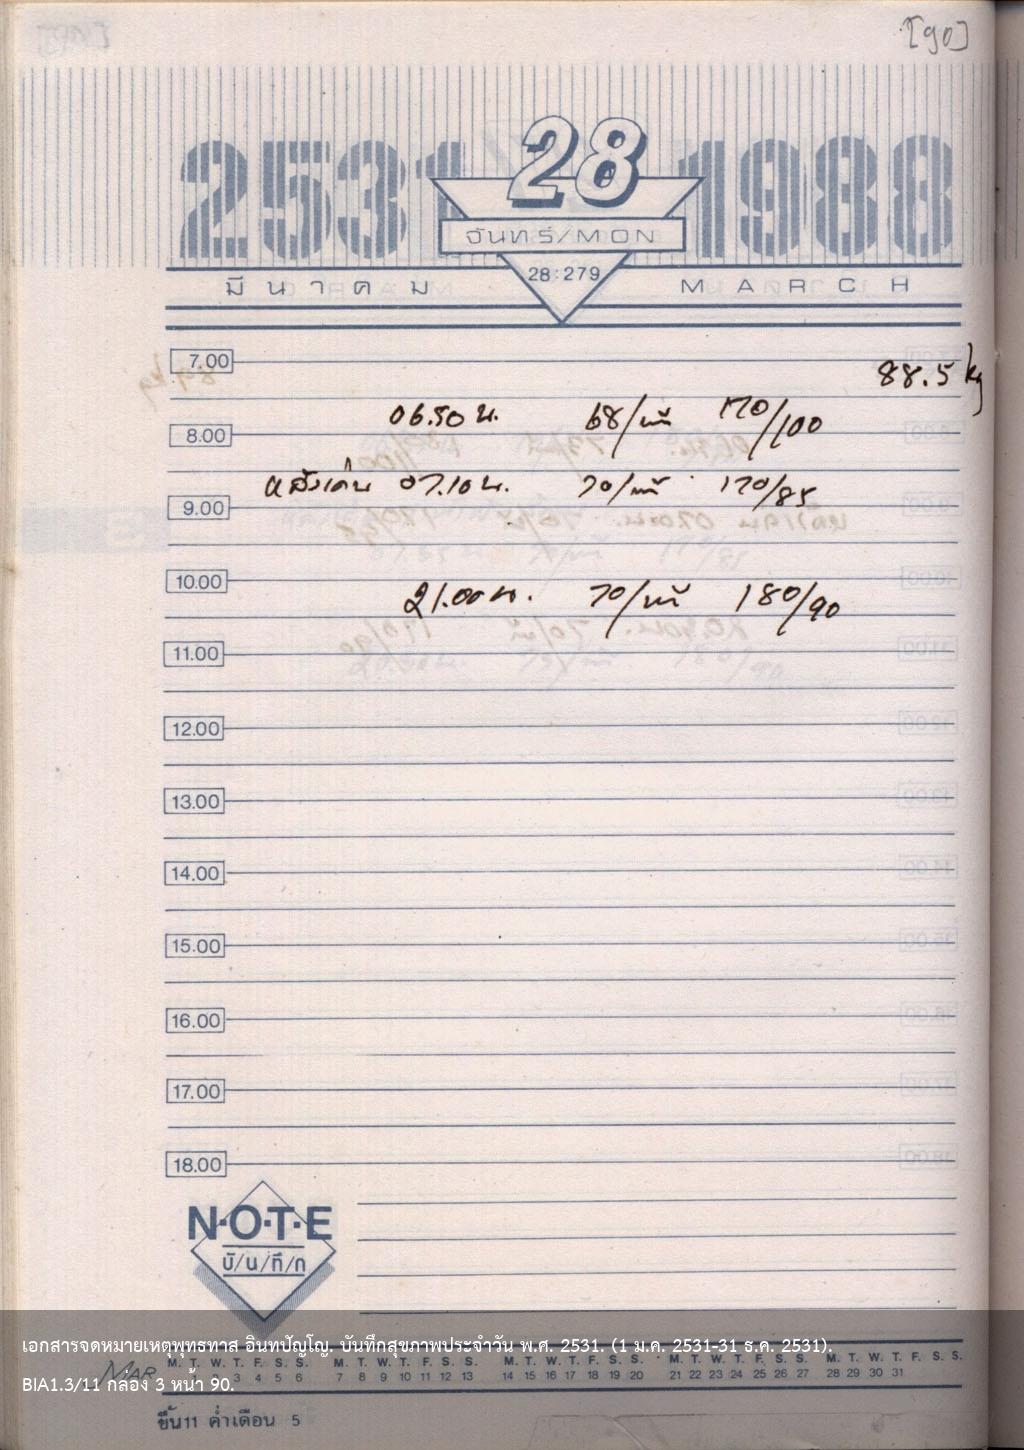 [90]
2531 28 1988
จันทร์/MON
28:279
มีนาคม MARCH
7.00
88.5 kg
06.50 น. 68/นาที 170/100
8.00
หลังเดิน 07.10 น. 70/นาที 170/85
9.00
10.00
21.00 น. 70/นาที 180/90
11.00
12.00
13.00
14.00
15.00
16.00
17.00
18.00
N·O·T·E
บั/น/ทึ/ก
เอกสารจดหมายเหตุพุทธทาส อินทปัญโญ. บันทึกสุขภาพประจำวัน พ.ศ. 2531. (1 ม.ค. 2531-31 ธ.ค. 2531).
MAR M. T. W. T. F. S. S. M. T. W. T. F. S. S. M. T. W. T. F. S. S. M. T. W. T. F. S. S. M. T. W. T. F. S. S.
1 2 3 4 5 6 7 8 9 10 11 12 13 14 15 16 17 18 19 20 21 22 23 24 25 26 27 28 29 30 31
BIA1.3/11 กล่อง 3 หน้า 90.
ขึ้น 11 ค่ำเดือน 5